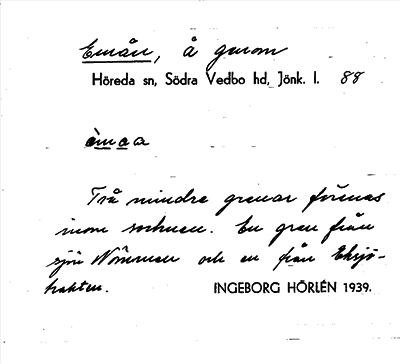 Emån, å genom
Höreda sn, Södra Vedbo hd, Jönk. l. 88
èmaa
Två mindre grenar förenas
inom socknen. En gren från
sjön Nömmen och en från Eksjö-
trakten. INGEBORG HÖRLÉN 1939.